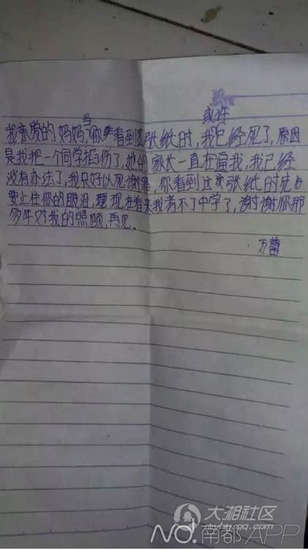 当 或许
我亲爱的妈妈,你看到这张纸时,我已经死了,原因
是我把一个同学 伤了,他的家长一直在 我,我已经
没有办法了,我只好以死谢罪,你看到这张纸的时
要止住你的眼泪, 现在看来我考不了中学了,谢谢你那
多年对我的照顾,再见.
万
大湘社区
NO.南都APP